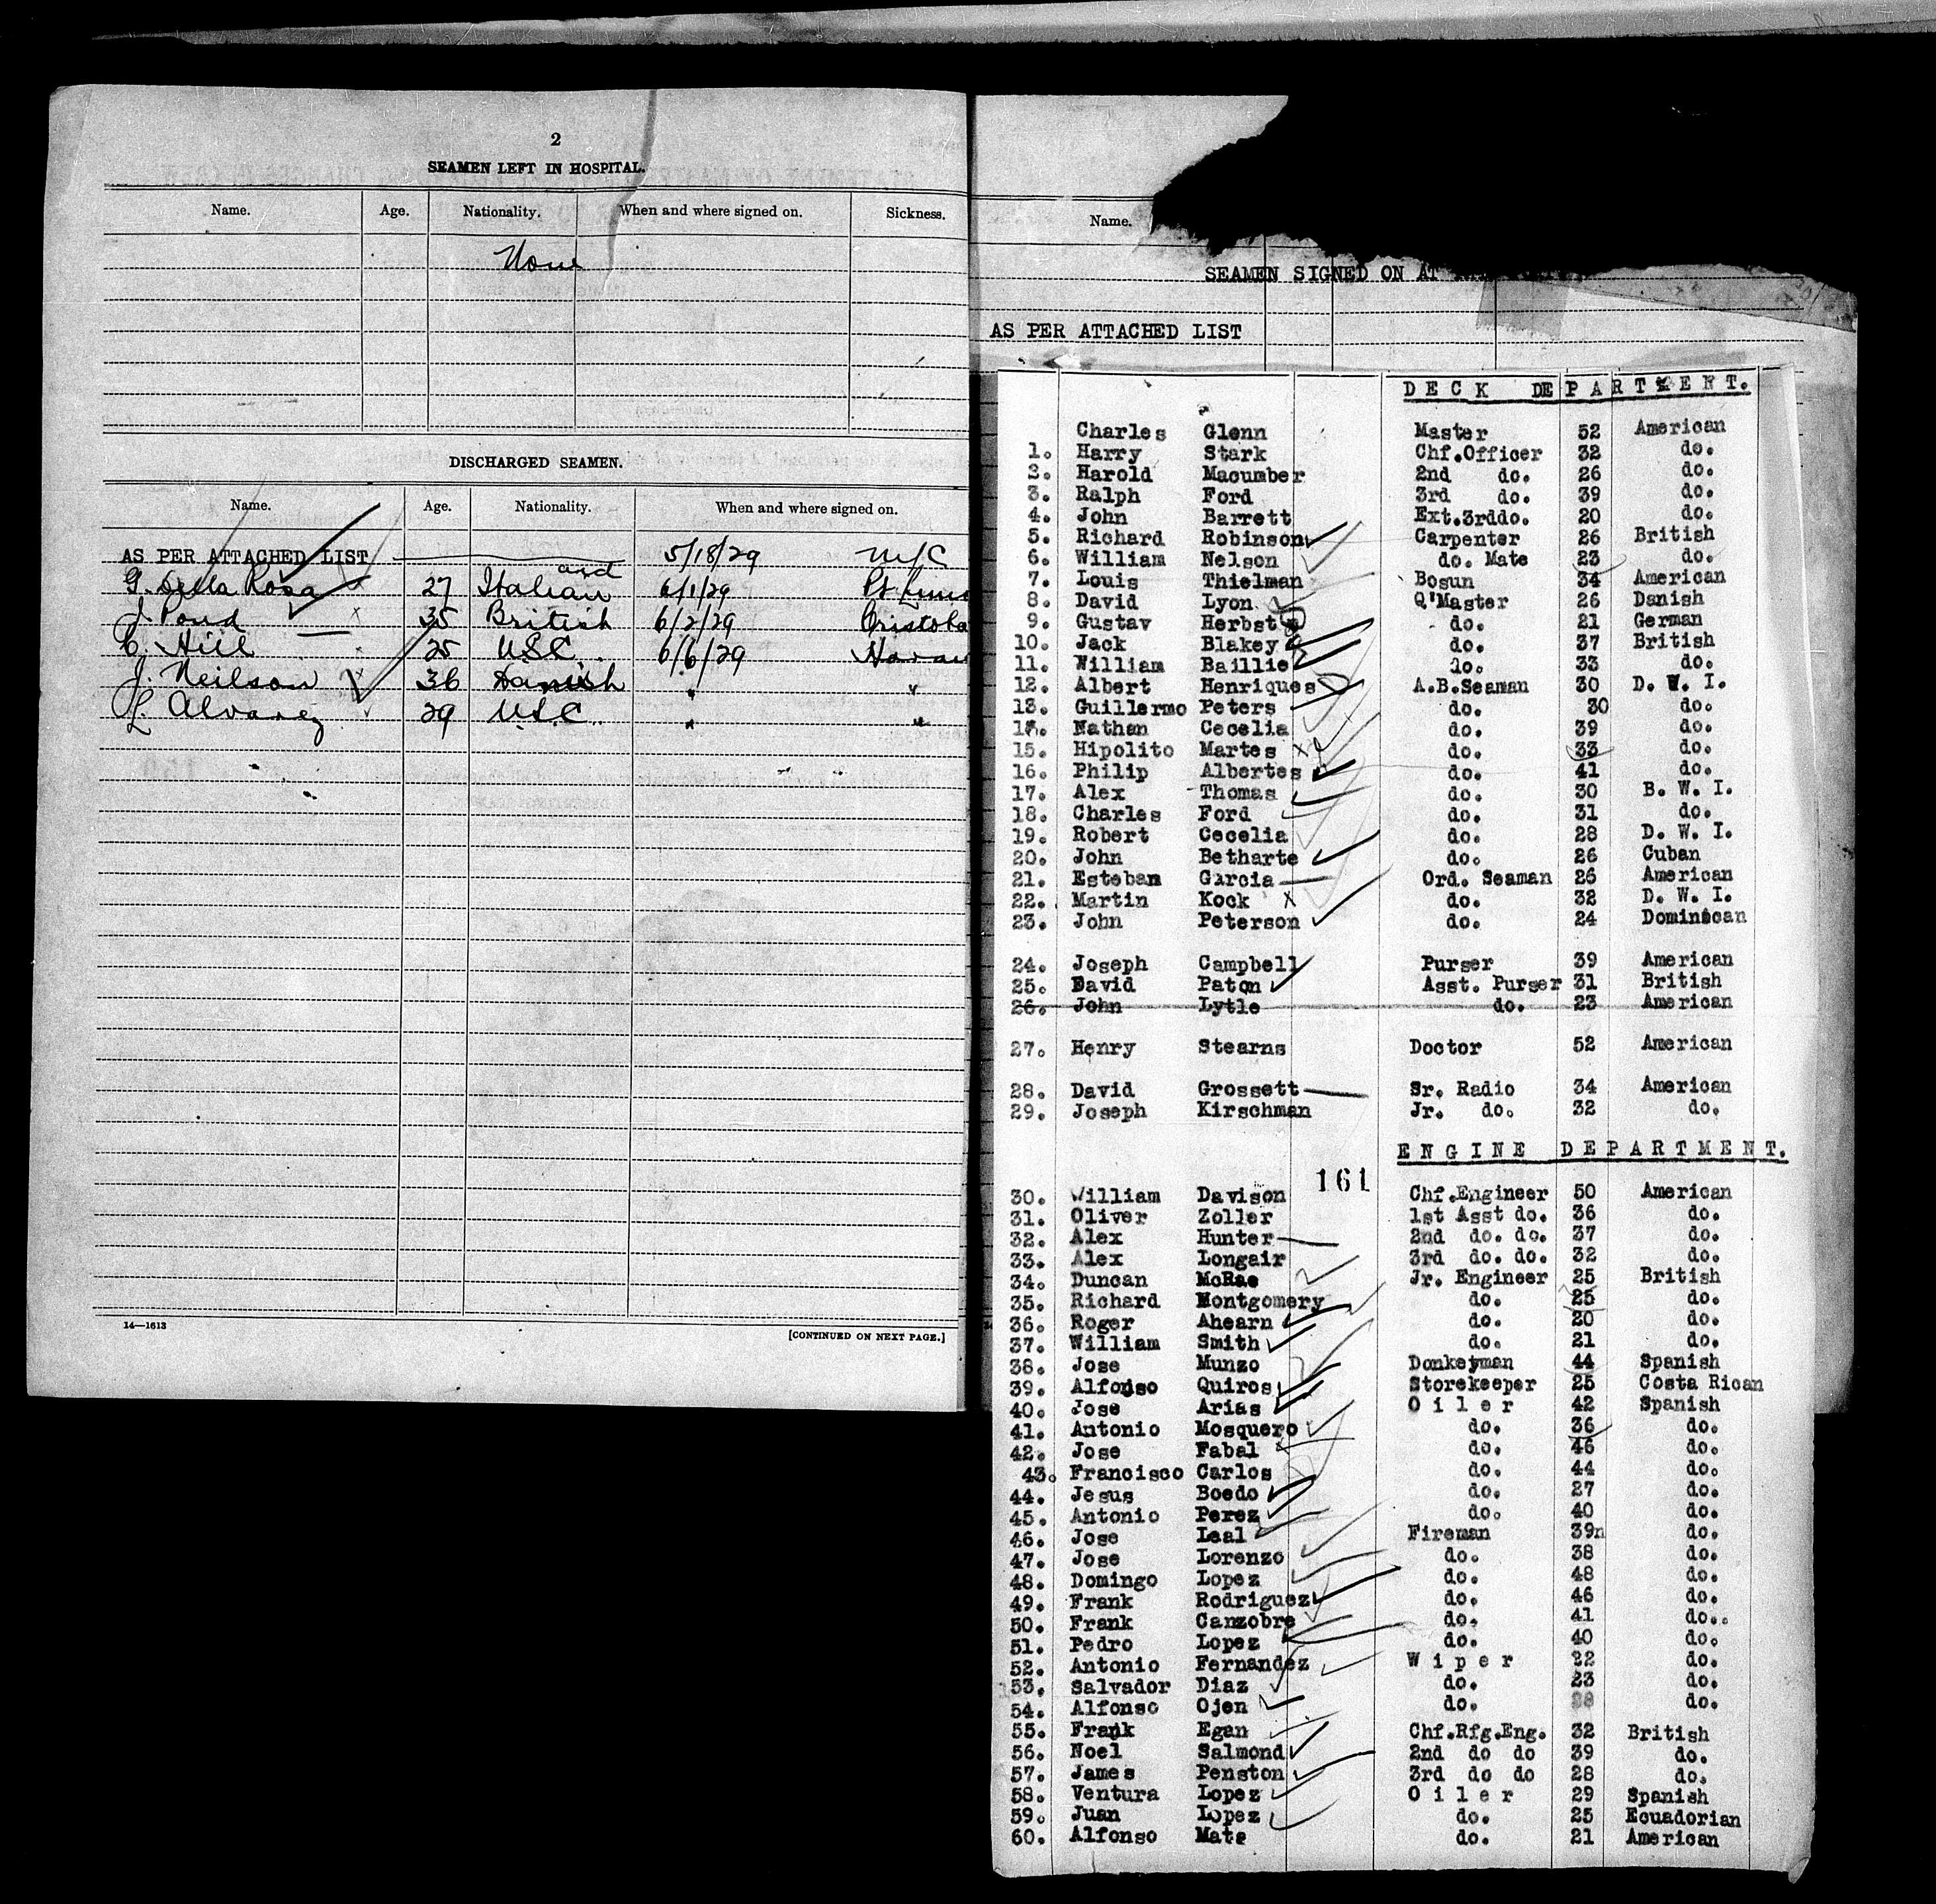 2
SEAMEN LEFT IN HOSPITAL.
Name. Age. Nationality. When and where signed on. Sickness.
None
DISCHARGED SEAMEN.
Name. Age. Nationality. When and where signed on.
AS PER ATTACHED LIST and 5/18/29 N/C
G. Della Rosa 27 Italian 6/1/29 Pt Limo
J. Pond 35 British 6/2/29 Cristoba
C. Hill 25 USC 6/6/29 Havan
J. Neilson 36 Danish " "
L. Alvarez 29 USC. " "
14—1613
[CONTINUED ON NEXT PAGE.]
Name.
SEAMEN SIGNED ON AT
AS PER ATTACHED LIST
DECK DEPARTMENT.
Charles Glenn Master 52 American
1. Harry Stark Chf.Officer 32 do.
2. Harold Macumber 2nd do. 26 do.
3. Ralph Ford 3rd do. 39 do.
4. John Barrett Ext.3rddo. 20 do.
5. Richard Robinson Carpenter 26 British
6. William Nelson do. Mate 23 do.
7. Louis Thielman Bosun 34 American
8. David Lyon Q'Master 26 Danish
9. Gustav Herbst do. 21 German
10. Jack Blakey do. 37 British
11. William Baillie do. 33 do.
12. Albert Henriques A.B.Seaman 30 D. W. I.
13. Guillermo Peters do. 30 do.
14. Nathan Cecelia do. 39 do.
15. Hipolito Martes do. 33 do.
16. Philip Albertes do. 41 do.
17. Alex Thomas do. 30 B. W. I.
18. Charles Ford do. 31 do.
19. Robert Cecelia do. 28 D. W. I.
20. John Betharte do. 26 Cuban
21. Esteban Garcia Ord. Seaman 26 American
22. Martin Kock do. 32 D. W. I.
23. John Peterson do. 24 Dominican
24. Joseph Campbell Purser 39 American
25. David Paton Asst. Purser 31 British
26. John Lytle do. 23 American
27. Henry Stearns Doctor 52 American
28. David Grossett Sr. Radio 34 American
29. Joseph Kirschman Jr. do. 32 do.
ENGINE DEPARTMENT.
161
30. William Davison Chf.Engineer 50 American
31. Oliver Zoller 1st Asst do. 36 do.
32. Alex Hunter 2nd do. do. 37 do.
33. Alex Longair 3rd do. do. 32 do.
34. Duncan McRae Jr. Engineer 25 British
35. Richard Montgomery do. 25 do.
36. Roger Ahearn do. 20 do.
37. William Smith do. 21 do.
38. Jose Munzo Donkeyman 44 Spanish
39. Alfonso Quiros Storekeeper 25 Costa Rican
40. Jose Arias Oiler 42 Spanish
41. Antonio Mosquero do. 36 do.
42. Jose Fabal do. 46 do.
43. Francisco Carlos do. 44 do.
44. Jesus Boedo do. 27 do.
45. Antonio Perez do. 40 do.
46. Jose Leal Fireman 39n do.
47. Jose Lorenzo do. 38 do.
48. Domingo Lopez do. 48 do.
49. Frank Rodriguez do. 46 do.
50. Frank Canzobre do. 41 do..
51. Pedro Lopez do. 40 do.
52. Antonio Fernandez Wiper 22 do.
53. Salvador Diaz do. 23 do.
54. Alfonso Ojen do. do.
55. Frank Egan Chf.Rfg.Eng. 32 British
56. Noel Salmond 2nd do do 39 do.
57. James Penston 3rd do do 28 do.
58. Ventura Lopez Oiler 29 Spanish
59. Juan Lopez do. 25 Ecuadorian
60. Alfonso Mate do. 21 American